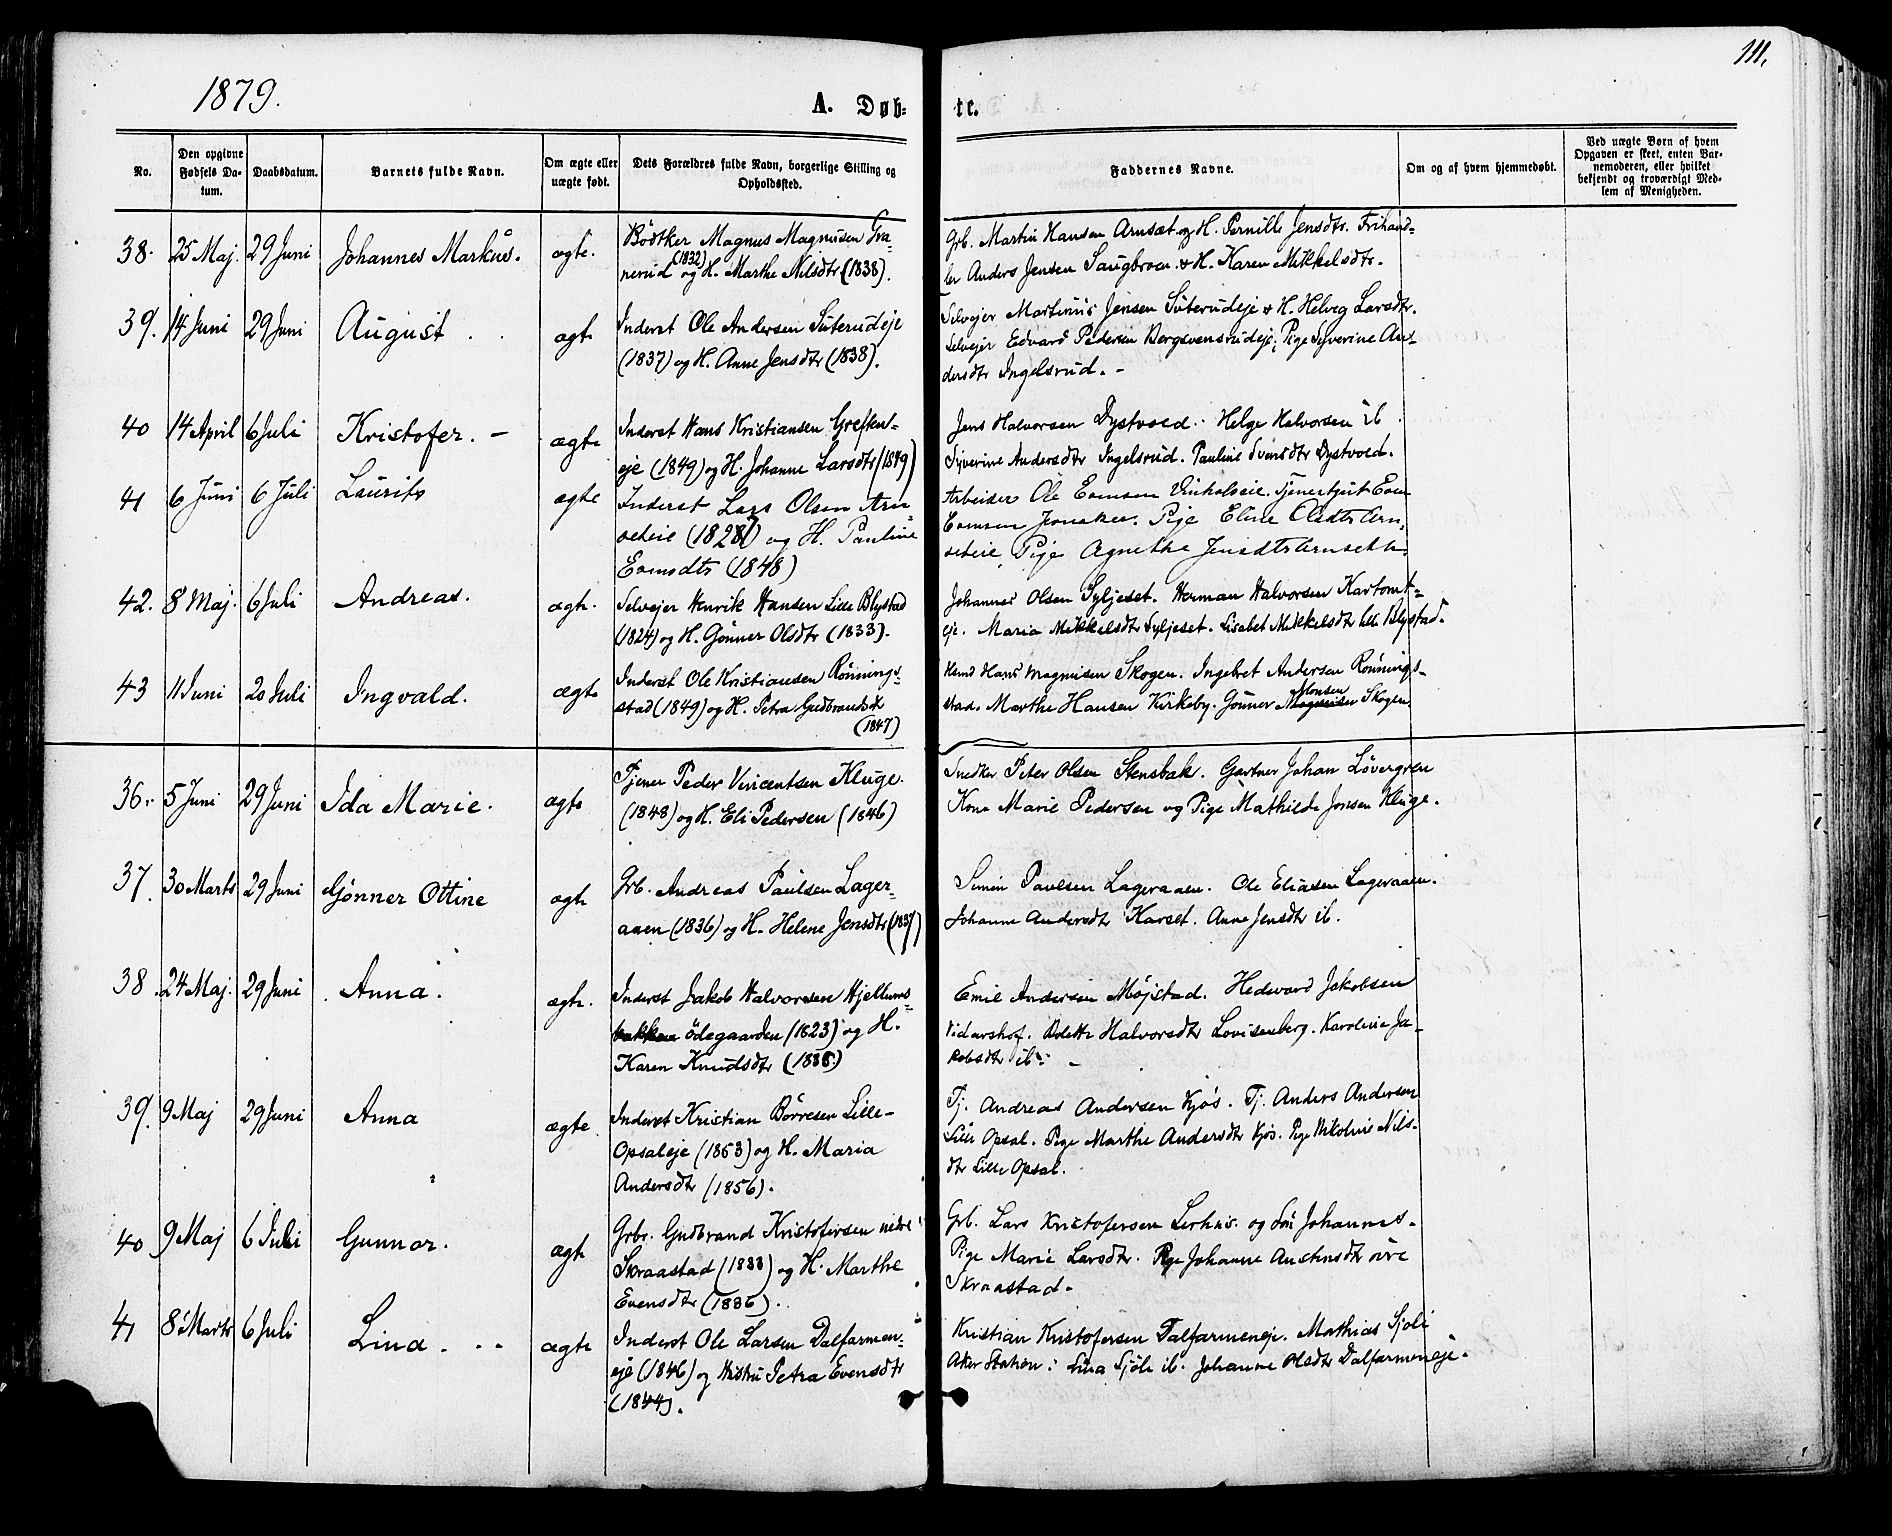 1879.
111.
A. Døb-
te.
No.
Den opgivne Fødsels Datum.
Daabsdatum.
Barnets fulde Navn.
Om ægte eller uægte født.
Dets Forældres fulde Navn, borgerlige Stilling og Opholdssted.
Faddernes Navne.
Om og af hvem hjemmedøbt.
Ved uægte Børn af hvem Opgaven er skeet, enten Barnemoderen, eller hvilket bekjendt og troværdigt Medlem af Menigheden.
38. 25 Maj. 29 Juni Johannes Markus. ægte.
Bödtker Magnus Magnusen Gra-
nerud (1832) og H. Marthe Nilsdtr (1838).
Grb. Martin Hansen Arnsæt og H. Pernille Jensdtr. Frihand-
ler Anders Jensen Saugbroen & H. Karen Mikkelsdtr.
39. 14 Juni 29 Juni August ægte
Inderst Ole Andersen Suterudeje
(1837) og H. Anne Jensdtr (1838).
Selvejer Martinus Jensen Suterudeje & H. Helvig Larsdtr.
Selvejer Edvard Pedersen Bergsvensrudeje, Pige Syverine An-
dersdtr Ingelsrud. -
40 14 April 6 Juli Kristofer. - ægte
Inderst Hans Kristiansen Greften-
eje (1849) og H. Johanne Larsdtr (1849)
Jens Halvorsen Dystvold. Helge Halvorsen ib
Syverine Andersdtr Ingelsrud. Pauline Svensdtr Dystvold.
41 6 Juni 6 Juli Laurits ægte
Inderst Lars Olsen Arn-
seteie (1828) og H. Pauline
Evensdtr (1848)
Arbeider Ole Evensen Tjenestgut Even
Evensen Pige Eline Olsdtr Arn-
seteie, Pige Agnethe Jensdtr Arnset
42. 8 Maj. 6 Juli Andreas. ægte.
Selvejer Henrik Hansen Lille Blystad
(1824) og H. Gönner Olsdtr (1833).
Johannes Olsen Syljeset. Herman Halvorsen Kartomt-
eje. Maria Mikkelsdtr Syljeset. Lisabet Mikkelsdtr lille Blystad.
43 11 Juni 20 Juli Ingvald. ægte
Inderst Ole Kristiansen Rönning-
stad (1849) og H. Petra Gudbrandsdtr
(1847)
Hans Magnusen Skogen. Ingebret Andersen Rönnings-
stad. Marthe Hansen Kirkeby. Gönner Monsen Skogen
36. 5 Juni 29 Juni Ida Marie. ægte
Tjener Peder Vincentsen Kluge.
(1848) og H. Eli Pedersen (1846)
Snedker Peter Olsen Stensbak. Gartner Johan Lövergren
Kone Marie Pedersen og Pige Mathilde Jonsen Kluge.
37. 30 Marts 29 Juni Gjönner Ottine ægte
Grb. Andreas Paulsen Lager-
aaen (1836) og H. Helene Jensdtr (1837)
Simen Paulsen Lageraaen. Ole Eliasen Lageraaen.
Johanne Andersdtr Karset. Anne Jensdtr ib.
38. 24 Maj. 29 Juni Anna. ægte.
Inderst Jakob Halvorsen Hjellums-
bakken ödegaarden (1823) og H.
Karen Knudsdtr (1838)
Emil Andersen Mojstad. Hedevard Jakobsen
Vidarshof. Bolette Halvorsdtr Lovisenberg. Karoline Ja-
kobsdtr ib. -
39. 9 Maj 29 Juni Anna ægte
Inderst Kristian Börresen Lille-
Opsaleje (1853) og H. Maria
Andersdtr (1856).
Tj. Andreas Andersen Kjös. Tj. Anders Andersen
Lille Opsal. Pige Marthe Andersdtr Kjös. Pige Nikoline Nils-
dtr Lille Opsal.
40 9 Maj 6 Juli Gunnar. ægte
Grbr. Gudbrand Kristofersen nedre
Skraastad (1833) og H. Marthe
Evensdtr (1836).
Grb. Lars Kristofersen Lerhus. og Sön Johannes.
Pige Marie Larsdtr. Pige Johanne Austensdtr övre
Skraastad.
41 8 Marts 6 Juli Lina. ægte
Inderst Ole Larsen Dalfarmen-
eje (1846) og Hustru Petra Evensdtr
(1844).
Kristian Kristofersen Dalfarmeneje. Mathias Sjöli
Aker Station. Lina Sjöli ib. Johanne Olsdtr Dalfarmeneje.